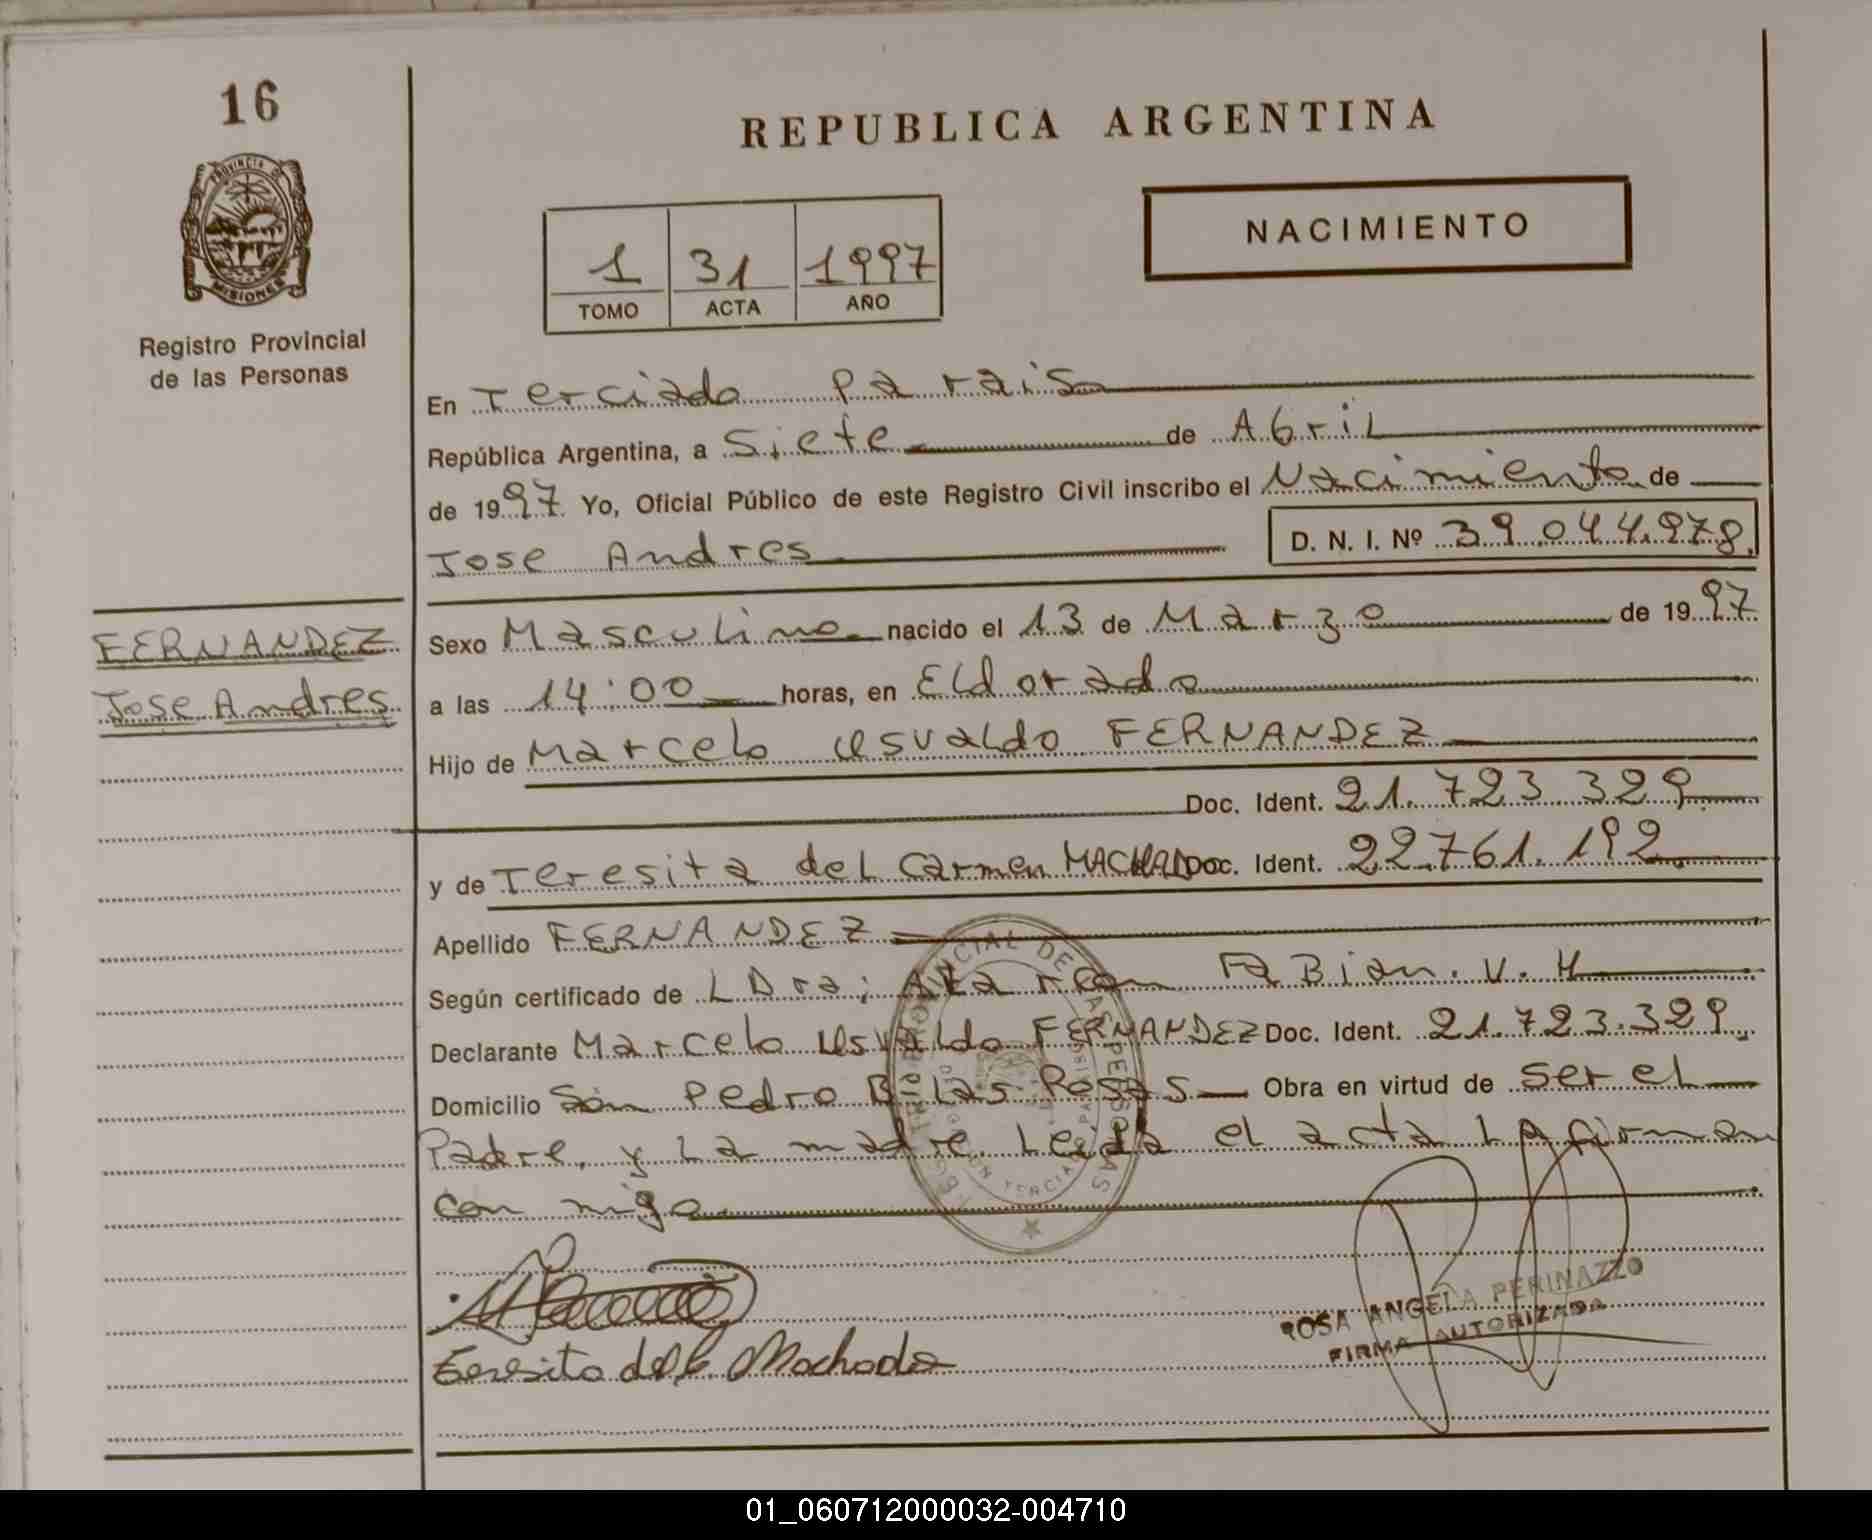 16
PROVINCIA DE
MISIONES
Registro Provincial
de las Personas
REPUBLICA ARGENTINA
1 31 1997
TOMO ACTA AÑO
NACIMIENTO
En Terciado Paraiso
República Argentina, a Siete de Abril
de 1997. Yo, Oficial Público de este Registro Civil inscribo el Nacimiento de
Jose Andres D. N. I. Nº 39.044.978.
FERNANDEZ
Jose Andres
Sexo Masculino nacido el 13 de Marzo de 1997
a las 14:00 horas, en Eldorado
Hijo de Marcelo Osvaldo FERNANDEZ
Doc. Ident. 21.723.329
y de Teresita del Carmen MACHADO Doc. Ident. 22.761.192.
Apellido FERNANDEZ
Según certificado de L Dra; Fabian. V. H
Declarante Marcelo Osvaldo FERNANDEZ Doc. Ident. 21.723.329.
Domicilio San Pedro B. Las Rosas Obra en virtud de ser el
Padre, y La madre. Leida el acta La firman
con migo.
Teresita del C. Machado
ROSA ANGELA PERINAZZO
FIRMA AUTORIZADA
01_060712000032-004710